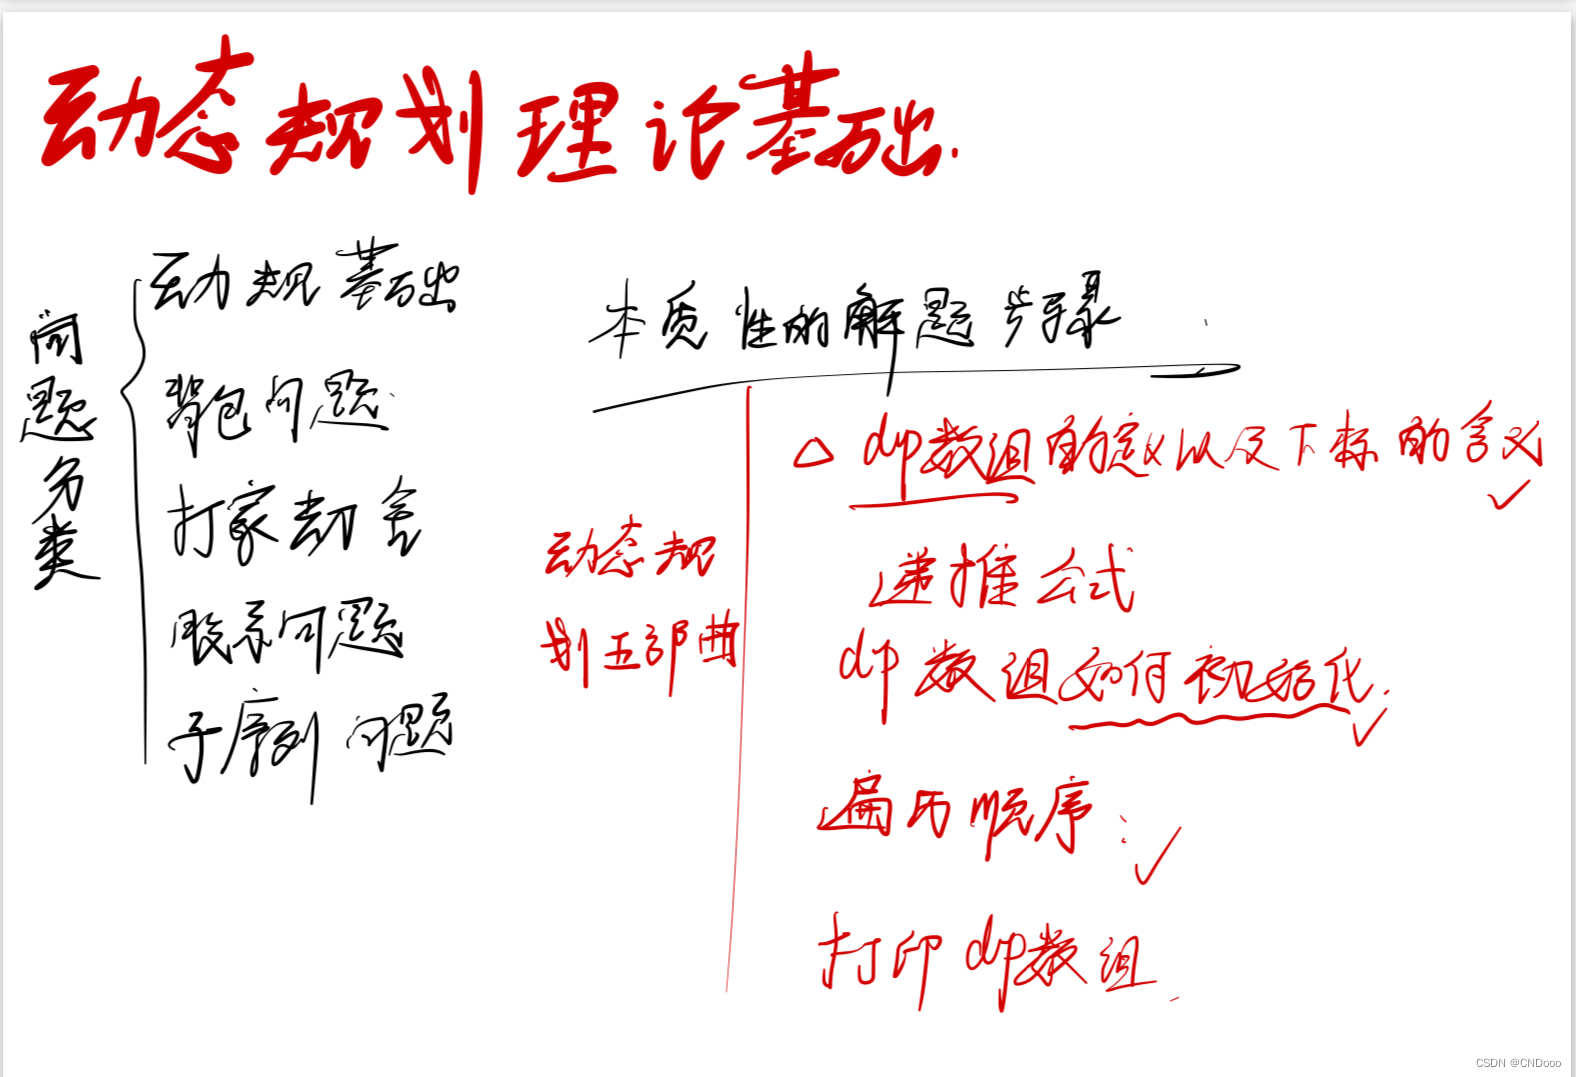 动态规划理论基础.
问题分类
动规基础
背包问题
打家劫舍
股票问题
子序列问题
本质性的解题步骤
动态规
划五部曲
dp数组的定义以及下标的含义
递推公式
dp数组如何初始化.
遍历顺序:
打印dp数组
CSDN @CNDooo